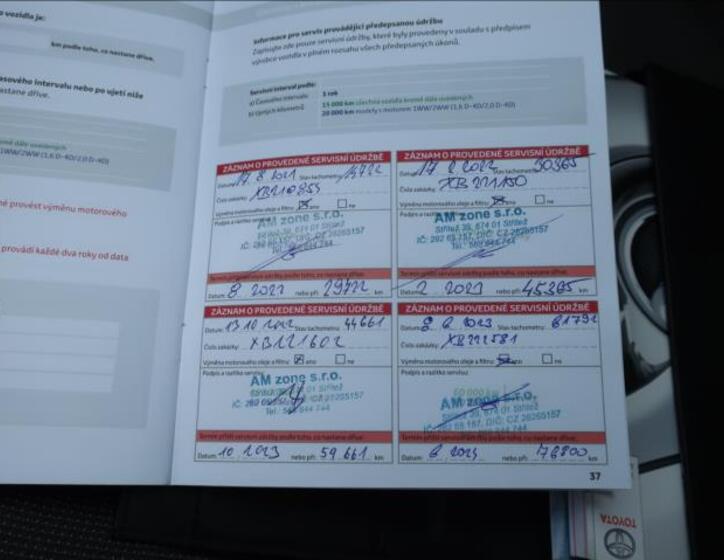 vozidla je:
km podle toho, co nastane dříve.
časového intervalu nebo po ujetí níže
nastane dříve.
1WW/2WW (1,6 D-4D/2,0 D-4D)
provést výměnu motorového
provádí každé dva roky od data
Informace pro servis provádějící předepsanou údržbu
Zapisujte zde pouze servisní údržby, které byly provedeny v souladu s předpisem
výrobce vozidla v plném rozsahu všech předepsaných úkonů.
Servisní interval podle:
a) Časového intervalu: 1 rok
b) Ujetých kilometrů: 15 000 km všechna vozidla kromě dále uvedených
20 000 km modely s motorem 1WW/2WW (1,6 D-4D/2,0 D-4D)
ZÁZNAM O PROVEDENÉ SERVISNÍ ÚDRŽBĚ
Datum: 17. 8 2021 Stav tachometru:
Číslo zakázky: XB210855
Výměna motorového oleje a filtru: ano ne
Podpis a razítko servisu:
AM zone s.r.o.
Střítež 39, 674 01 Střítež
IČ: 292 65 157, DIČ: CZ 29265157
Termín příští servisní údržby podle toho, co nastane dříve.
Datum: 8. 2022 nebo při: 29722 km
ZÁZNAM O PROVEDENÉ SERVISNÍ ÚDRŽBĚ
Datum: 17 2 2022 Stav tachometru: 30365
Číslo zakázky: XB221150
Výměna motorového oleje a filtru: ano ne
Podpis a razítko servisu:
AM zone s.r.o.
Střítež 39, 674 01 Střítež
Termín příští servisní údržby podle toho, co nastane dříve.
Datum: 2 2023 nebo při: 45365 km
ZÁZNAM O PROVEDENÉ SERVISNÍ ÚDRŽBĚ
Datum: 13 10 2022 Stav tachometru: 44661
Číslo zakázky: XB221602
Výměna motorového oleje a filtru: ano ne
Podpis a razítko servisu:
AM zone s.r.o.
Termín příští servisní údržby podle toho, co nastane dříve.
Datum: 10 2023 nebo při: 59 661 km
ZÁZNAM O PROVEDENÉ SERVISNÍ ÚDRŽBĚ
Datum: 8 6 2023 Stav tachometru: 61792
Číslo zakázky: XB222581
Výměna motorového oleje a filtru: ano ne
Podpis a razítko servisu:
AM zone s.r.o.
Termín příští servisní údržby podle toho, co nastane dříve.
Datum: 6 2024 nebo při: 76800 km
37
TOYOTA